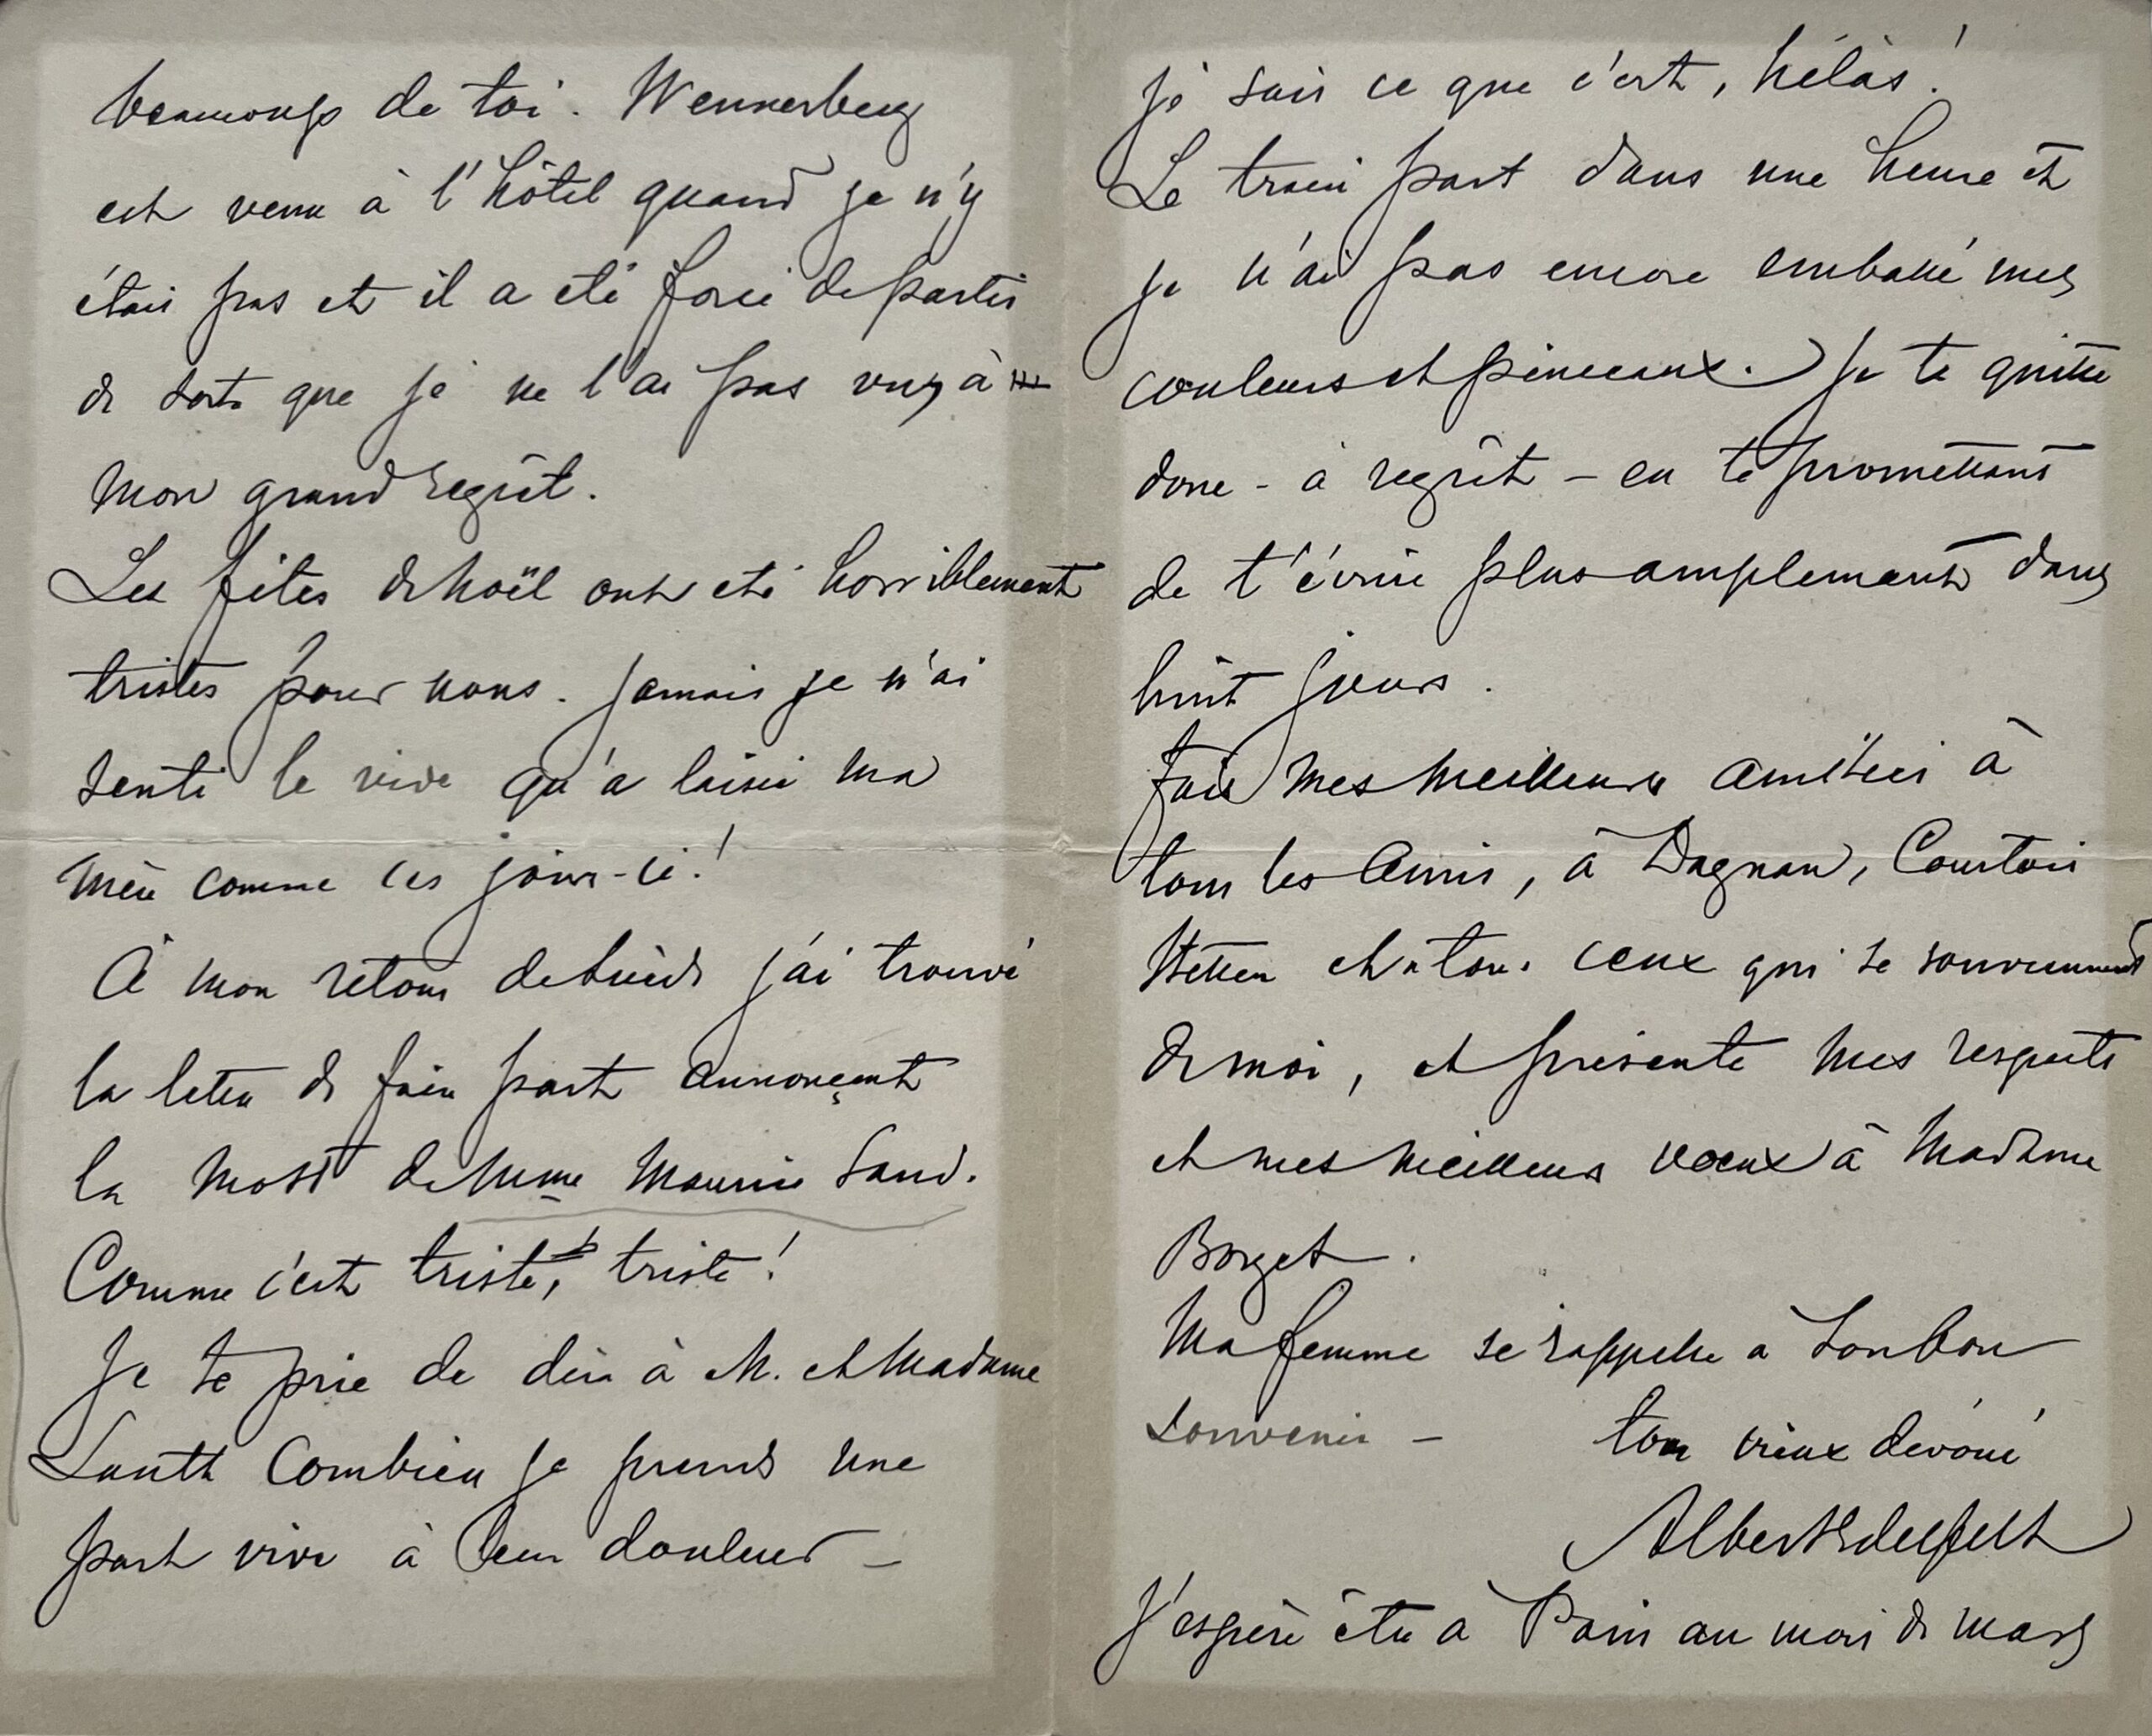 beaucoup de toi. Wennerberg
est venu à l'hôtel quand je n'y
étais pas et il a été forcé de partir
de sorte que je ne l'ai pas vu, à
mon grand regrêt.
Les fêtes de Noël ont été horriblement
tristes pour nous. Jamais je n'ai
senti le vide qu'a laissé ma
mère comme ces jours-ci!
À mon retour de Suède j'ai trouvé
la lettre de faire part annonçant
la mort de Mme Maurice Sand.
Comme c'est triste, triste!
Je te prie de dire à M. et Madame
Lauth combien je prends une
part vive à leur douleur —
je sais ce que c'est, hélàs!
Le train part dans une heure et
je n'ai pas encore emballé mes
couleurs et pinceaux. Je te quitte
donc - à regrêt - en te promettant
de t'écrire plus amplement dans
huit jours.
Fais mes meilleures amitiés à
tous les amis, à Dagnan, Courtois
Stetten et à tous ceux qui se souviennent
de moi, et présente mes respects
et mes meilleurs voeux à Madame
Borget.
Ma femme se rappelle a ton bon
souvenir — ton vieux dévoué
Albert Edelfelt
J'espère être à Paris au mois de mars